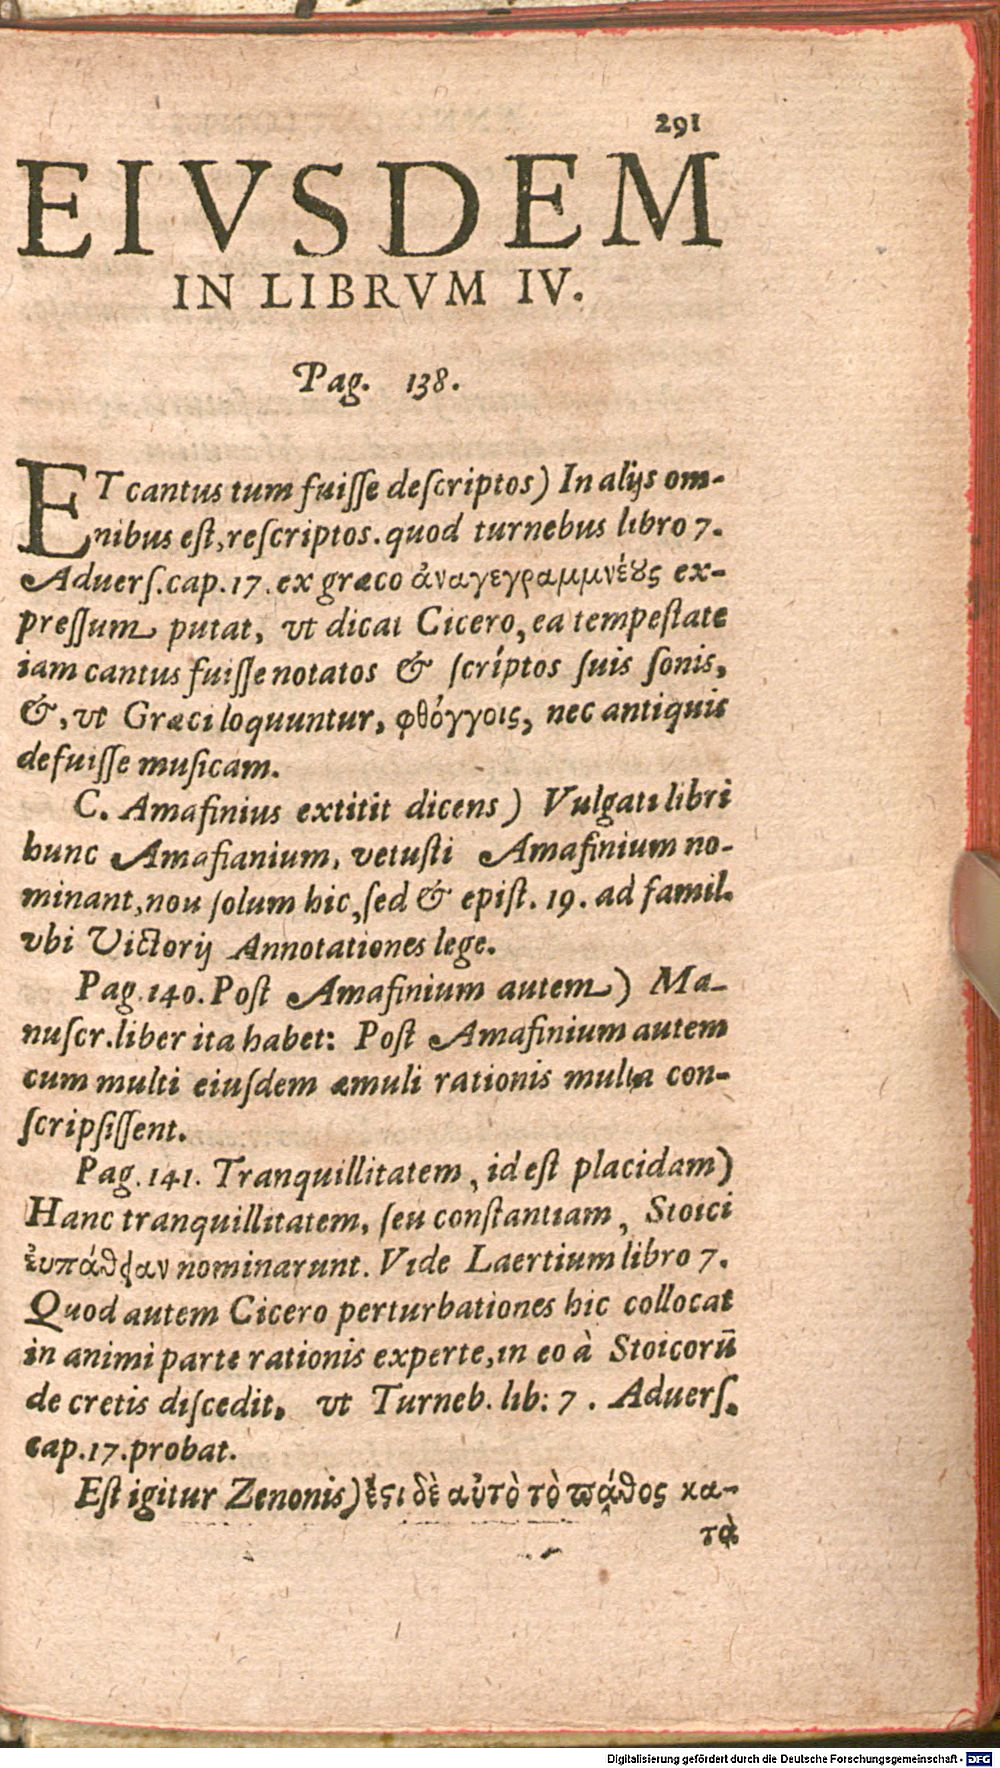 291
EIVSDEM
IN LIBRVM IV.
Pag. 138.
ET cantus tum fuiſſe deſcriptos) In alijs om-
nibus eſt, reſcriptos. quod turnebus libro 7.
Aduerſ. cap. 17. ex græco ἀναγεγραμμνέȣς ex-
preſſum putat, vt dicat Cicero, ea tempeſtate
iam cantus fuiſſe notatos & ſcríptos ſuis ſonis,
&, vt Græci loquuntur, φθόγγοις, nec antiquis
defuiſſe muſicam.
C. Amafinius extitit dicens) Vulgati libri
hunc Amafianium, vetuſti Amafinium no-
minant, nou ſolum hic, ſed & epiſt. 19. ad famil.
vbi Victorij Annotationes lege.
Pag. 140. Poſt Amafinium autem) Ma-
nuſcr. liber ita habet: Poſt Amafinium autem
cum multi eiuſdem æmuli rationis multa con-
ſcripſiſſent.
Pag. 141. Tranquillitatem, id eſt placidam)
Hanc tranquillitatem, ſeu conſtantiam, Stoici
ἐυπάθειαν nominarunt. Vide Laertium libro 7.
Quod autem Cicero perturbationes hic collocat
in animi parte rationis experte, in eo à Stoicorū
de cretis diſcedit, vt Turneb. lib: 7. Aduerſ.
cap. 17. probat.
Eſt igitur Zenonis) ἔϛι δὲ αὐτὸ τὸ ϖάθος κα-
τὰ
Digitalisierung gefördert durch die Deutsche Forschungsgemeinschaft - DFG